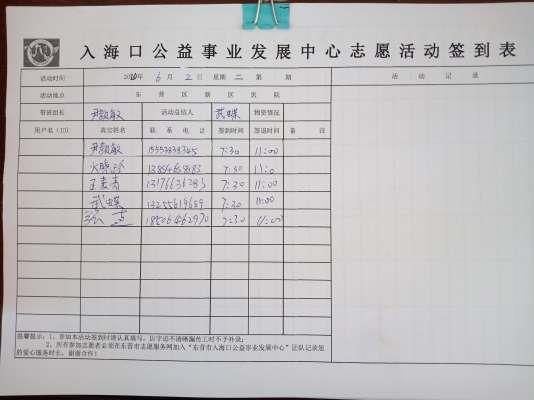 入海口公益事业发展中心志愿活动签到表
活动时间 2020年 6 月 2 日 星期 二 第 期 活动记录
活动地点 东营区 新区 医院
带班组长 尹颜敏 活动总结人 武蝶 物资情况
用户名(ID) 真实姓名 联系电话 签到时间 签退时间 备注
尹颜敏 7:30 11:00
7:30 11:0
王素青 13176636283 7:30 11:00
武蝶 13255619689 7:30 11:00
18506462970 7:30 11:00
温馨提示:1、参加本活动签到时请认真填写,因字迹不清晰漏传工时不予补录;
2、所有参加志愿者必须在东营市志愿服务网加入“东营市入海口公益事业发展中心”团队记录您
的爱心服务时长,谢谢合作!